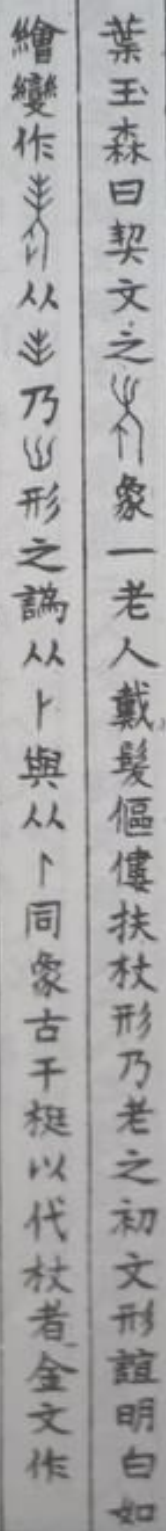 葉玉森曰契文之象一老人戴髮傴僂扶杖形乃老之初文形誼明白如
繪變作从乃形之譌从卜與从同象古干梃以代杖者金文作